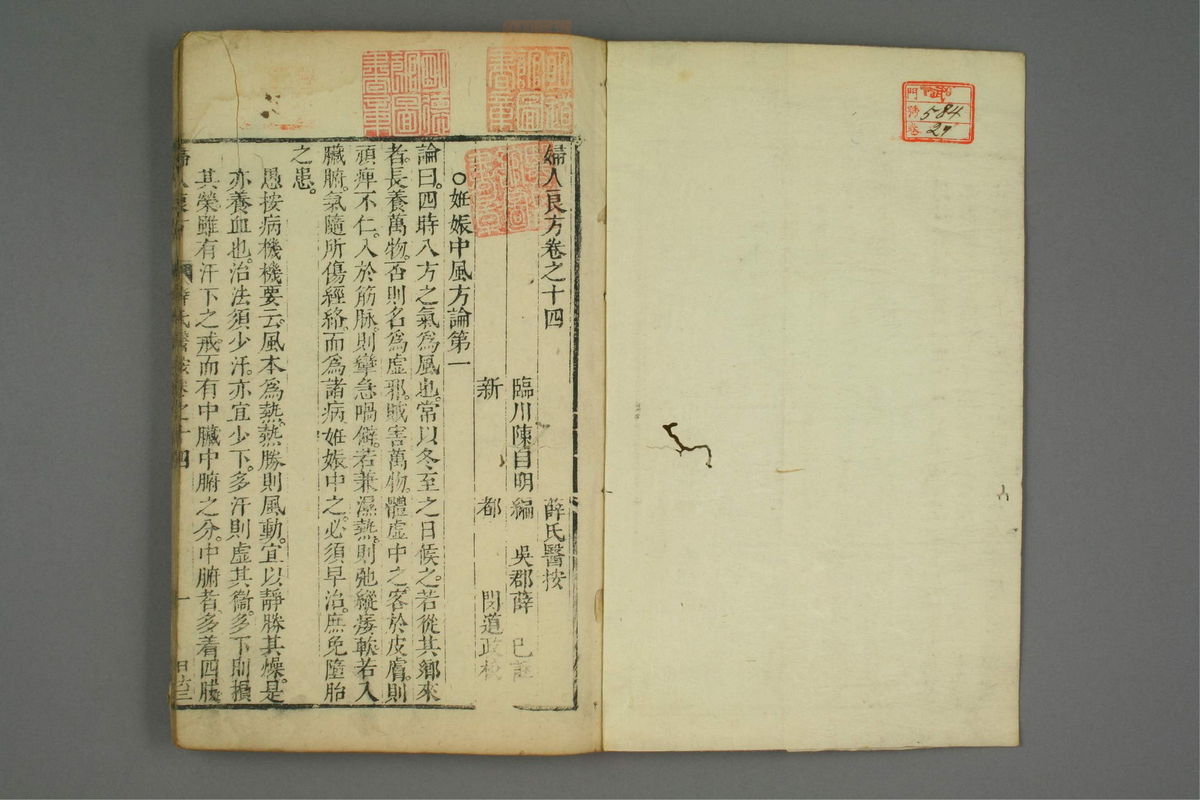 婦人良方卷之十四
薛氏醫按
臨川陳自明編
吳郡薛己註
新都
閔道政校
○妊娠中風方論第一
論曰。四時八方之氣為風也。常以冬至之日候之。若從其鄉來
者。長養萬物。否則名為虛邪。賊害萬物。體虛中之。客於皮膚。則
頑痺不仁。入於筋脉。則攣急喎僻。若兼濕熱。則弛縱痿軟。若入
臟腑。氣隨所傷經絡。而為諸病。妊娠中之。必須早治。庶免隨胎
之患。
愚按病機機要云。風本為熱。熱勝則風動。宜以靜勝其燥。是
亦養血也。治法須少汗。亦宜少下。多汗則虛其衞。多下則損
其榮。雖有汗下之戒。而有中臟中腑之分。中腑者。多着四肢
婦人良方
薛氏醫按卷之十四
一
門
號
卷
584
27